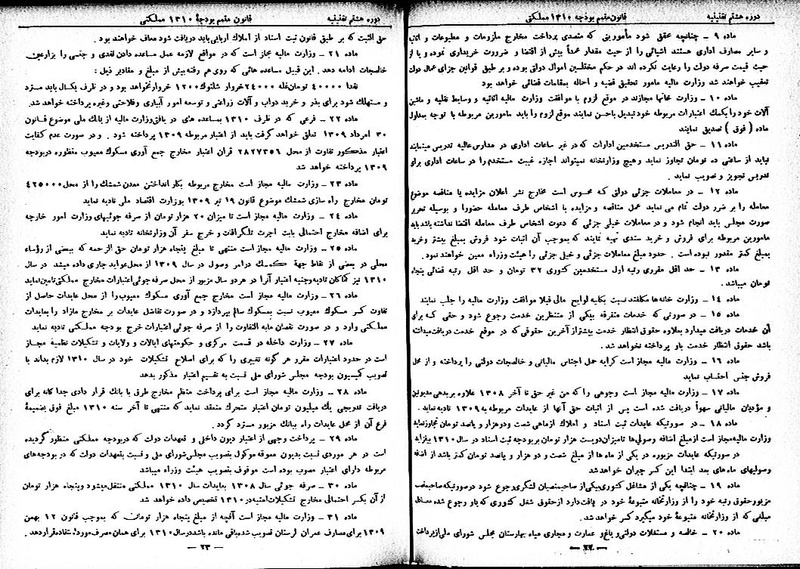 دوره هشتم تقنینیه
قانون متمم بودجه ۱۳۱۰ مملکتی
ماده ۹ – چنانچه محقق شود مأمورینی که متصدی پرداخت مخارج ملزومات و مطبوعات و اثاثیه
و سایر مصارف اداری هستند اشیائی را از حیث مقدار عمداً بیش از اقتضا و ضرورت خریداری نموده و یا از
حیث قیمت صرفه دولت را رعایت نکرده اند در حکم مختلسین اموال دولتی بوده و بر طبق قوانین جزای عمال دولت
تعقیب خواهند شد وزارت مالیه مامور تحقیق قضیه و احاله بمقامات قضائی خواهد بود
ماده ۱۰ – وزارت خانها مجازند در موقع لزوم با موافقت وزارت مالیه اثاثیه و وسائط نقلیه و ماشین
آلات خود را بکمک اعتبارات مربوطه خود تبدیل باحسن نمایند موقع لزوم را باید مامورین مربوطه با توجه بمدلول
ماده ( فوق ) تصدیق نمایند
ماده ۱۱ – حق التدریس مستخدمین ادارات که در غیر ساعات اداری در مدارس عالیه تدریس مینمایند
نباید از ساعتی ده تومان تجاوز نماید و هیچ وزارتخانه نمیتواند اجازه غیبت مستخدم را در ساعات اداری برای
تدریس تجویز و تصویب نماید .
ماده ۱۲ – در معاملات جزئی دولتی که محسوس است مخارج نشر اعلان مزایده یا مناقصه موضوع
معامله را بر ضرر دولت تمام می نماید عمل مناقصه و مزایده با اشخاص طرف معامله حضوراً و بوسیله تحریر
صورت مجلس باید انجام شود و در معاملات خیلی جزئی که دعوت اشخاص طرف معامله اقتضا نداشته باشد باید
مامورین مربوطه برای فروش و خرید سندی تهیه نمایند که بموجب آن اثبات شود فروش بمبلغ بیشتر و خرید
بمبلغ کمتر مقدور نبوده است . حدود مبلغ معاملات جزئی و خیلی جزئی را هیئت وزراء معین خواهند نمود .
ماده ۱۳ – حد اقل مقرری رتبه اول مستخدمین کشوری ۳۲ تومان و حد اقل رتبه قضائی پنجاه
تومان میباشد .
ماده ۱۴ – وزارت خانه ها مکلفند نسبت بکلیه لوایح مالی قبلا موافقت وزارت مالیه را جلب نمایند
ماده ۱۵ – در صورتی که خدمات متفرقه بیکی از منتظرین خدمت رجوع شود و حقی که برای
آن خدمات دریافت میدارد بعلاوه حقوق انتظار خدمت بیشتر از آخرین حقوقی که در موقع خدمت دریافت میداشت
باشد حقوق انتظار خدمت باو پرداخته نخواهد شد .
ماده ۱۶ – وزارت مالیه مجاز است کرایه حمل اجناس مالیاتی و خالصجات دولتی را پرداخته و از محل
فروش جنس احتساب نماید
ماده ۱۷ – وزارت مالیه مجاز است وجوهی را که من غیر حق تا آخر ۱۳۰۸ علاوه بر بدهی مدیونین
و مؤدیان مالیاتی سهواً دریافت شده است پس از اثبات حق آنها از عایدات مربوطه به ۱۳۰۹ تادیه نماید .
ماده ۱۸ – در صورتیکه عایدات ثبت اسناد و املاک از ماهی شصت و دو هزار و پانصد تومان تجاوز نماید
وزارت مالیه مجاز است از مبلغ اضافه وصولی ها تا میزان دویست هزار تومان بر بودجه ثبت اسناد در سال ۱۳۱۰ بیفزاید
در صورتیکه عایدات مزبوره در یکی از ماه ها از مبلغ شصت و دو هزار و پانصد تومان کمتر باشد از اضافه
وصولیهای ماه های بعد ابتدا این کسر جبران خواهد شد
ماده ۱۹ – چنانچه یکی از مشاغل کشوری بیکی از صاحبمنصبان لشکری رجوع شود در صورتیکه صاحبمنصب
مزبور حقوق رتبه خود را از وزارتخانه متبوعۀ خود دریافت دارد از حقوق شغل کشوری که باو رجوع شده معادل
مبلغی که از وزارتخانه متبوعۀ خود میگیرد کسر خواهد شد .
ماده ۲۰ – خالصه و مستغلات دولتی و باغ و عمارت و مجاری میاه بهارستان مجلس شورای ملی از پرداخت
– ۲۲ –
دوره هشتم تقنینیه
قانون متمم بودجۀ ۱۳۱۰ مملکتی
حق الثبت که بر طبق قانون ثبت اسناد از املاک اربابی باید دریافت شود معاف خواهند بود .
ماده ۲۱ – وزارت مالیه مجاز است که در مواقع لازمه عمل مساعده دادن نقدی و جنسی را بزارعین
خالصجات ادامه دهد . این قبیل مساعده هائی که روی هم رفته بیش از مبلغ و مقادیر ذیل :
نقدا ۴۰۰۰۰ تومان غله ۲۴۰۰۰ خروار شلتوک ۱۲۰۰ خروار نخواهد بود و در ظرف یکسال باید مسترد
و مستهلک شود برای بذر و خرید دواب و آلات زراعتی و توسعه امور آبیاری و فلاحتی وغیره پرداخته خواهد شد .
ماده ۲۲ – فرعی که در ظرف ۱۳۱۰ بمساعده های دریافتی وزارت مالیه از بانک ملی موضوع قانون
۳۰ امرداد ۱۳۰۹ تعلق خواهد گرفت باید از اعتبار مربوطه ۱۳۰۹ پرداخته شود . و در صورت عدم کفایت
اعتبار مذکور تفاوت از محل ۲۸۲۷۳۵۶ قران اعتبار مخارج جمع آوری مسکوک معیوب منظوره در بودجه
۱۳۰۹ پرداخته خواهد شد
ماده ۲۳ – وزارت مالیه مجاز است مخارج مربوطه بکار انداختن معدن شمشک را از محل ۴۲۵۰۰۰
تومان مخارج راه سازی شمشک موضوع قانون ۱۹ تیر ۱۳۰۹ بوزارت اقتصاد ملی تادیه نماید
ماده ۲۴ – وزارت مالیه مجاز است تا میزان ۲۰ هزار تومان از صرفه جوئیهای وزارت امور خارجه
برای اضافه مخارج احتمالی بابت اجرت تلگرافات و خرج سفر آن وزارتخانه تادیه نماید
ماده ۲۵ – وزارت مالیه مجاز است منتهی تا مبلغ پنجاه هزار تومان حق الزحمه که ببعضی از رؤساء
محلی در بعضی از نقاط جهة کمک در امر وصول در سال ۱۳۰۹ از محل عواید جاری داده میشد در سال
۱۳۱۰ نیز کماکان تادیه و جنیه اعتبار آنرا در هر دو سال مزبور از محل صرفه جوئی اعتبارات مخارج مملکتی تامین نماید
ماده ۲۶ – وزارت مالیه مجاز است مخارج جمع آوری مسکوک معیوب را از محل عایدات حاصل از
تفاوت کسر مسکوک معیوب نسبت بمسکوک سالم بپردازد و در صورت تفاضل عایدات بر مخارج مازاد را بعایدات
مملکتی وارد و در صورت نقصان مابه التفاوت را از صرفه جوئی اعتبارات خرج بودجه مملکتی تادیه نماید
ماده ۲۷ – وزارت داخله در قسمت مرکزی و حکومتهای ایالات و ولایات و تشکیلات نظمیه مجاز
است در حدود اعتبارات مقرر هر گونه تغییری را که برای اصلاح تشکیلات خود در سال ۱۳۱۰ لازم بداند با
تصویب کمیسیون بودجه مجلس شورای ملی نسبت به تقسیم اعتبار مذکور بدهد
ماده ۲۸ – وزارت مالیه مجاز است برای پرداخت منظم مخارج طرق با بانک قرار دادی جداگانه برای
دریافت تدریجی یک میلیون تومان اعتبار متحرک منعقد نماید که منتهی تا آخر سنه ۱۳۱۰ مبلغ فوق بضمیمۀ
فرع آن از محل عایدات راه ببانک مزبور مسترد گردد .
ماده ۲۹ – پرداخت وجهی از اعتبار دیون داخلی و تعهدات دولت که در بودجه مملکتی منظور گردیده
است در هر موردی نسبت بدیون معوقه موکول بتصویب مجلس شورای ملی و نسبت بتعهدات دولت که در بودجه های
مربوطه دارای اعتبار مصوب بوده است موقوف بتصویب هیئت وزراء میباشد
ماده ۳۰ – صرفه جوئی سال ۱۳۰۸ بعایدات سال ۱۳۱۰ مملکتی منتقل میشود و پنجاه هزار تومان
از آن بکسر احتمالی مخارج تشکیلات امنیه در ۱۳۱۰ تخصیص داده خواهد شد
ماده ۳۱ – وزارت مالیه مجاز است آنچه از مبلغ پنجاه هزار تومان که بموجب قانون ۱۲ بهمن
۱۳۰۹ برای مصارف عمران لرستان تصویب شده باقی مانده باشد در سال ۱۳۱۰ برای همان مصرف مورد استفاده قرار دهد .
– ۲۳ –